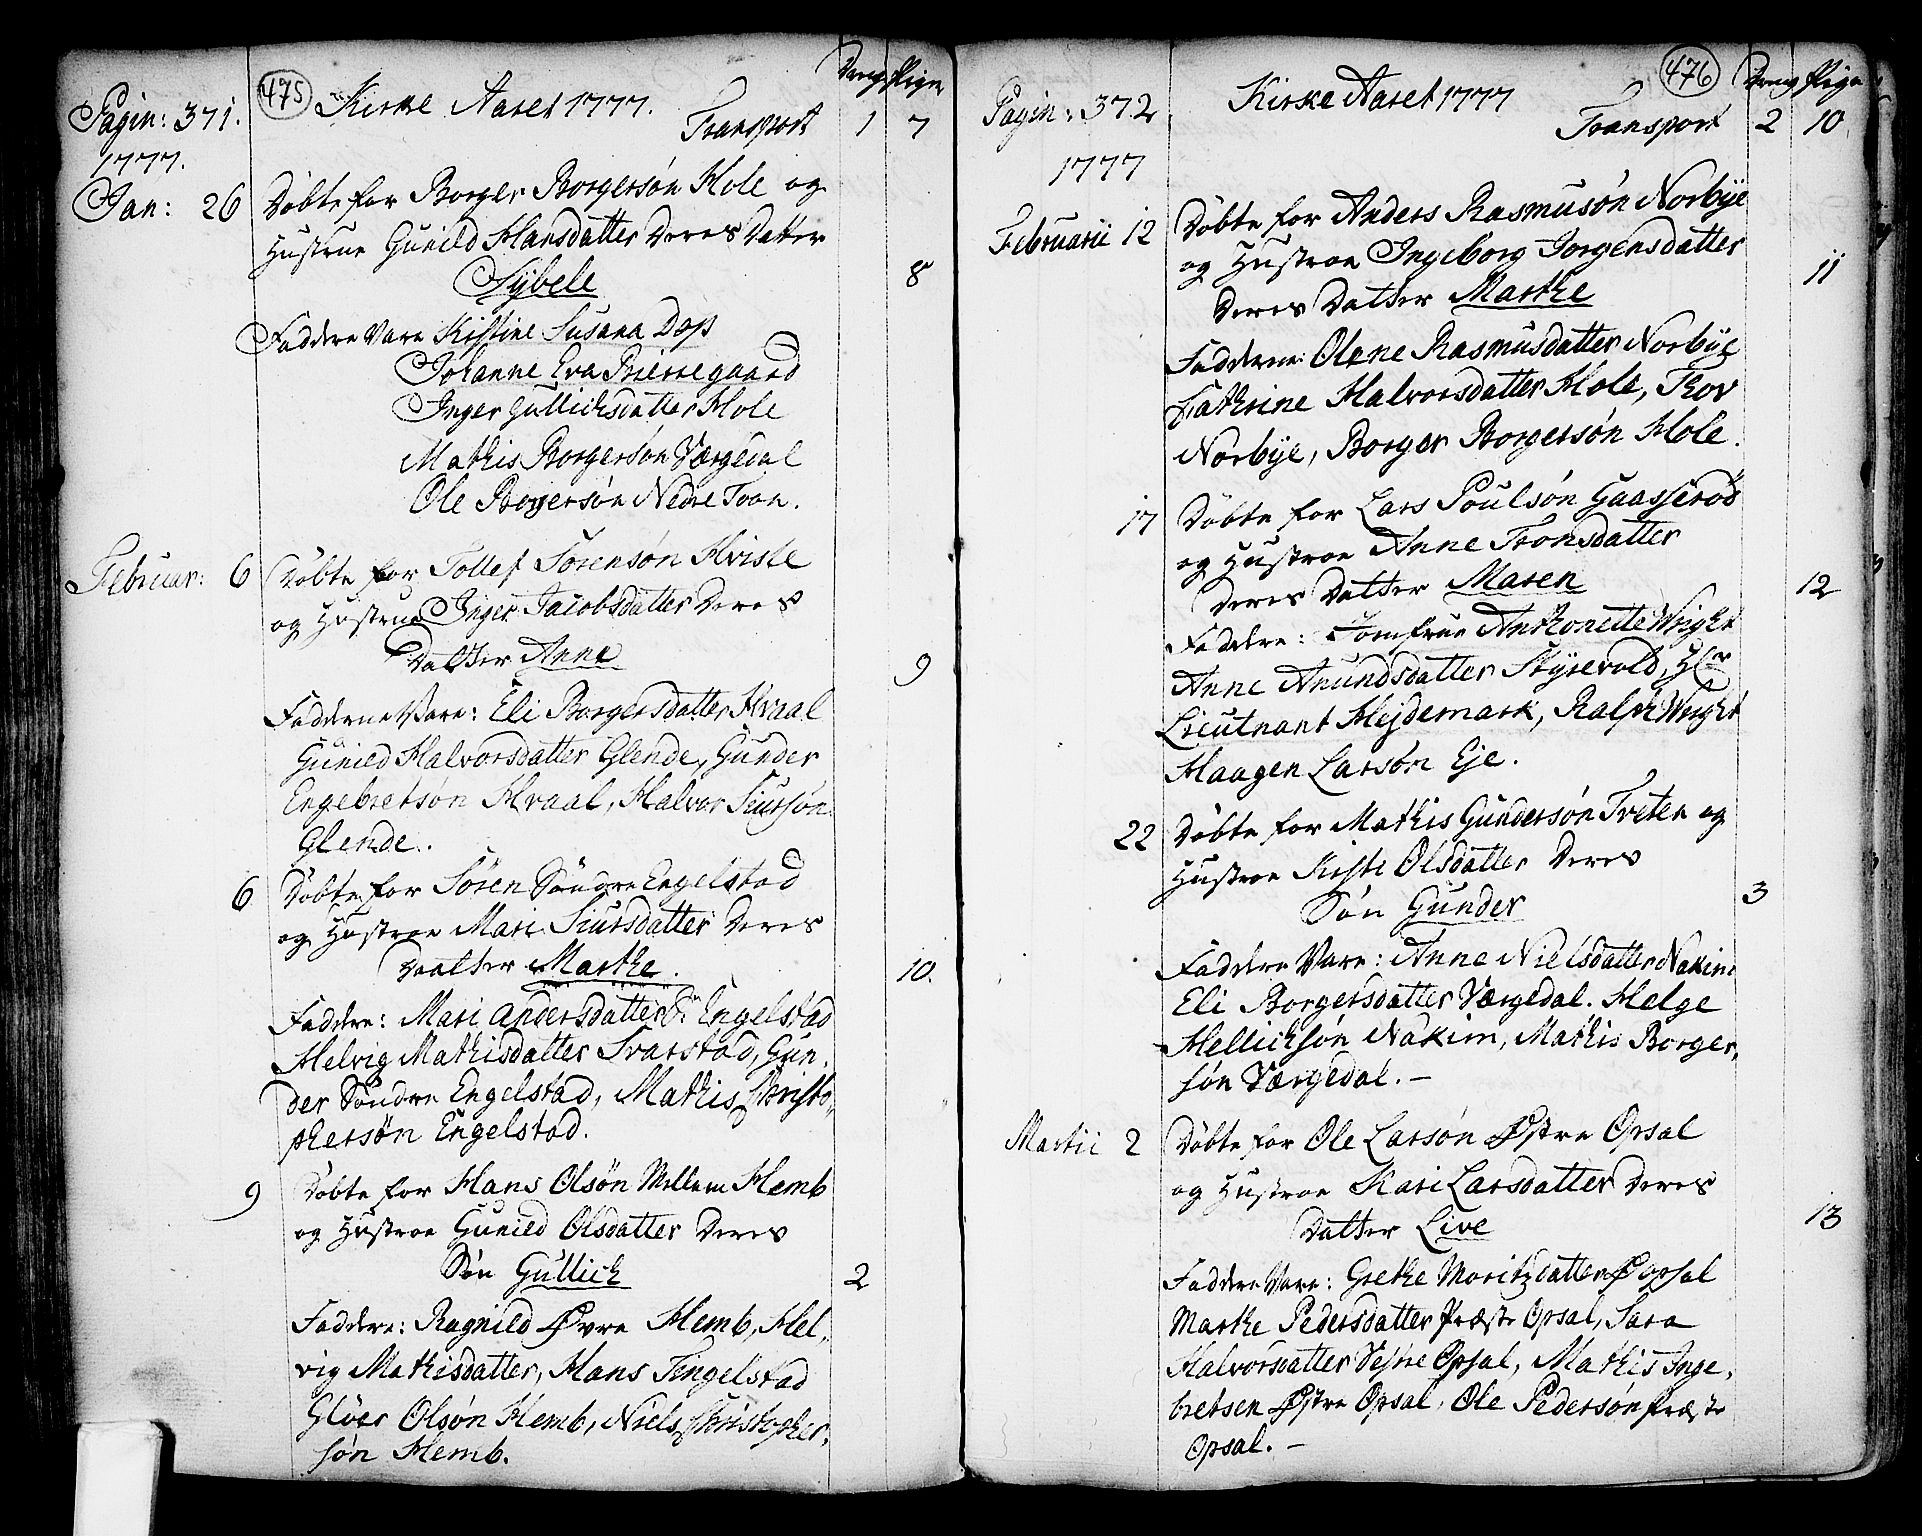 475
Dreng Pige
Pagin: 371. Kirke Aaret 1777.
Transport 1 7
1777.
Jan: 26 Døbte for Borger Borgersøn Hole og
Hustrue Gunild Hansdatter Deres Datter
Sybele
8
Faddere Vare Kistine Susana Dop
Johanne Eva Bierregaard
Inger Gullichsdatter Hole
Mathis Borgersøn Værgedal
Ole Borgersøn Nedre Toon.
Februar: 6 Døbte for Tollef Sørensøn Hvisle
og Hustrue Inger Jacobsdatter Deres
Datter Anne
9
Fadderne Vare: Eli Borgersdatter Hvaal
Gunild Halvorsdatter Glende, Gunder
Engebretsøn Hvaal, Halvor Siursøn
Glende.
6 Døbte for Sören Söndre Engelstad
og Hustroe Mari Siursdatter Deres
Daatter Marthe.
10.
Faddere: Mari Andersdatter S: Engelstad
Helvig Mathisdatter Svarstad, Gun,
der Söndre Engelstad, Mathis Christo,
phersøn Engelstad.
9 Døbte for Hans Olsøn Mellem Hemb
og Hustroe Gunild Olsdatter Deres
Søn Gullich
2
Faddere: Ragnild Øvre Hemb, Hel,
vig Mathisdatter, Hans Tingelstad
Gløer Olsøn Hemb, Niels Christopher,
søn Hemb.
476
Dreng Pige
Pagin: 372 Kirke Aaret 1777
Transport 2 10
1777
Februarii 12 Døbte for Anders Rasmusøn Norbye
og Hustroe Ingeborg Jorgensdatter
11
Deres Datter Marthe
Fadderne: Olene Rasmusdatter Norbye
Cathrine Halvorsdatter Hole, Thov
Norbye, Borger Borgersøn Hole.
17 Døbte for Lars Poulsøn Gaasserød
og Hustroe Anne Tronsdatter
Deres Datter Maren
12
Faddere: Jomfrue Anthonette Wright
Anne Amundsdatter Styrevold, Hr
Lieutnant Hejdemark, Ralph Wright
Haagen Larsøn Eje.
22 Døbte for Mathis Gundersøn Treten og
Hustroe Kisti Olsdatter Deres
Søn Gunder
3
Faddere Vare: Anne Nielsdatter Nakim
Eli Borgersdatter Værgedal. Helge
Hellichsøn Nakim, Mathis Borger,
søn Værgedal. –
Martii 2 Døbte for Ole Larsøn Østre Opsal
og Hustroe Kari Larsdatter Deres
Datter Live
13
Faddere Vare: Grethe Moritzdatter Ø Opsal
Marthe Pedersdatter Præste Opsal, Sara
Halvorsdatter Vestre Opsal, Mathis Inge,
bretsen Østre Opsal, Ole Pedersøn Præste
Opsal. –